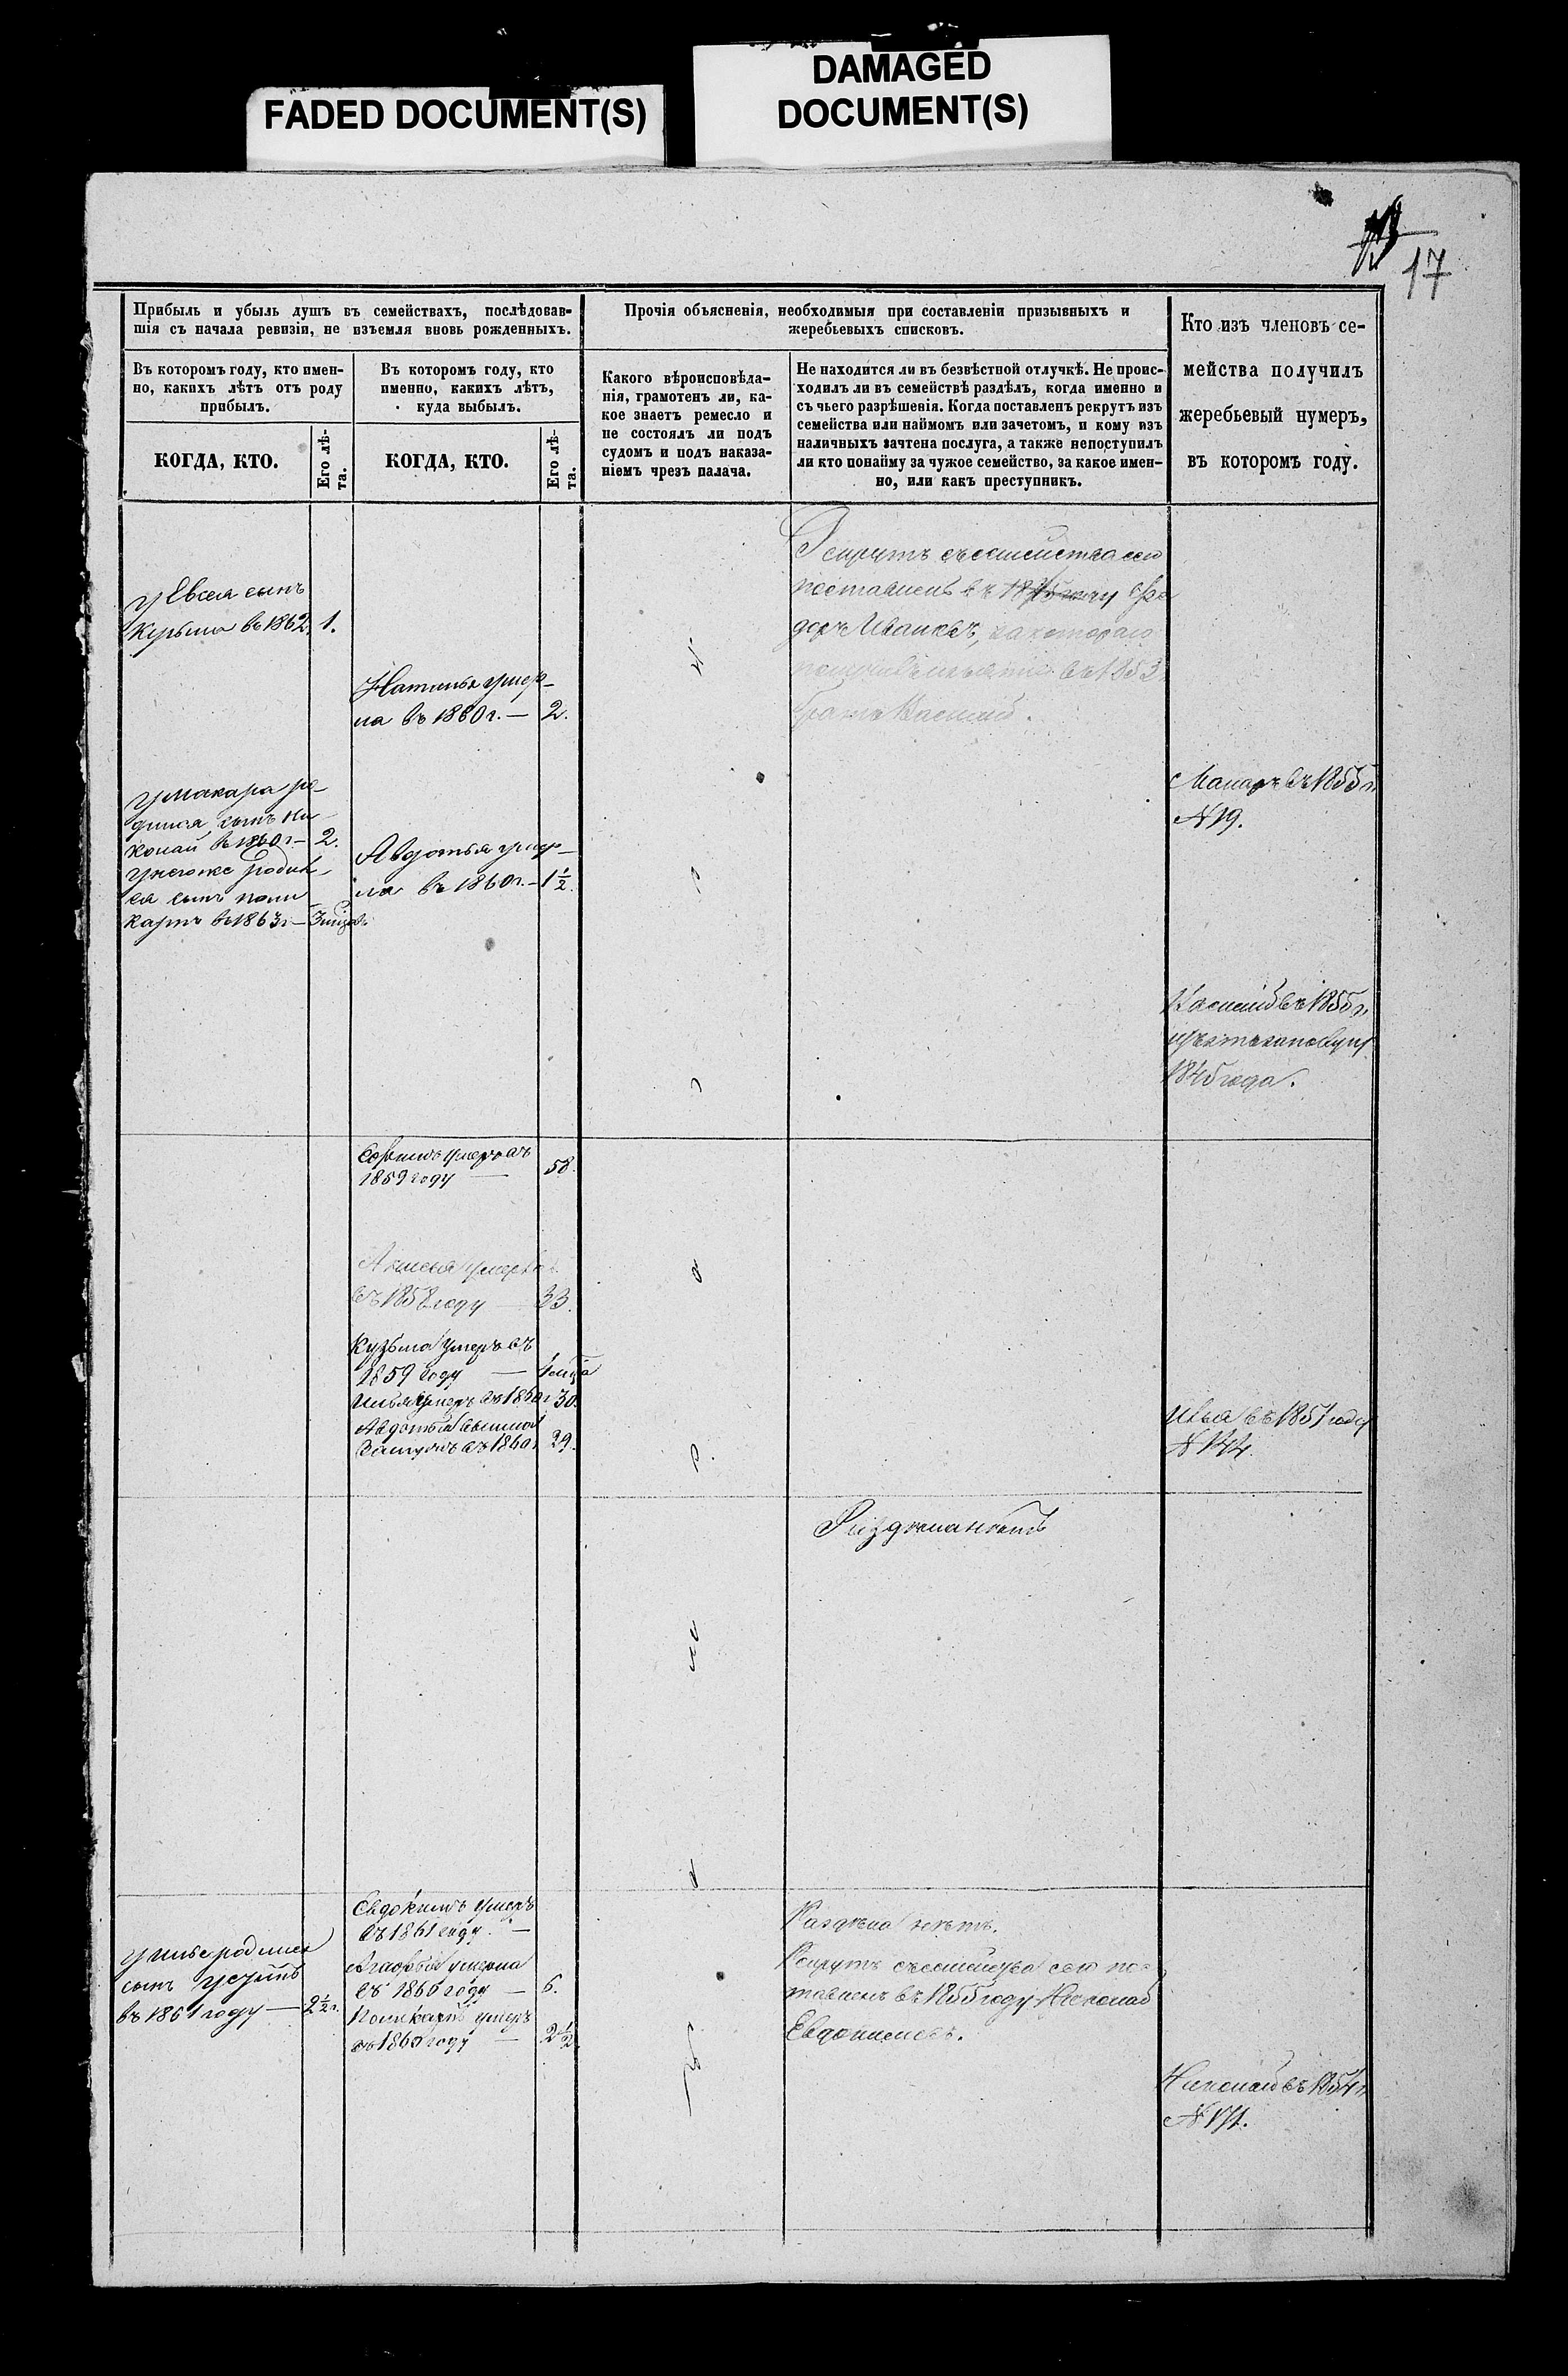 FADED DOCUMENT(S)
DAMAGED
DOCUMENT(S)
17
Прибыль и убыль душъ въ семействахъ, послѣдовав-
шія съ начала ревизіи, не взъемля вновь рожденныхъ.
Въ которомъ году, кто имен-
но, какихъ лѣтъ отъ роду
прибылъ.
КОГДА, КТО.
Его лѣ-
та.
Въ которомъ году, кто
именно, какихъ лѣтъ,
куда выбылъ.
КОГДА, КТО.
Его лѣ-
та.
Прочія объясненія, необходимыя при составленіи призывныхъ и
жеребьевыхъ списковъ.
Какого вѣроисповѣда-
нія, грамотенъ ли, ка-
кое знаетъ ремесло и
не состоялъ ли подъ
судомъ и подъ наказа-
ніемъ чрезъ палача.
Не находится ли въ безвѣстной отлучкѣ. Не проис-
ходилъ ли въ семействѣ раздѣлъ, когда именно и
съ чьего разрѣшенія. Когда поставленъ рекрутъ изъ
семейства или наймомъ или зачетомъ, и кому изъ
наличныхъ зачтена послуга, а также непоступилъ
ли кто понайму за чужое семейство, за какое имен-
но, или какъ преступникъ.
Кто изъ членовъ се-
мейства получилъ
жеребьевый нумеръ,
въ которомъ году.
Рекрутъ съ семейства сего
поставленъ въ Фе
доръ Ивановъ, за котораго
въ 1853
братъ Василий.
у Евсея сынъ
Кузьма въ 1862 1.
Наталья умер-
ла въ 1860 г. — 2.
Макаръ въ 1855 г.
№ 19.
у Макара ро
дился сынъ Ни
колай въ 1860 г — 2.
у него же родил
ся сынъ Поли
карпъ въ 1863 г — 3 мѣсяц.
Авдотья умер
ла въ 1860 г. — 1½.
Василий въ 1855 г.
1845 года.
умеръ въ
1859 году — 58.
умеръ
въ 1858 году — 33.
Кузьма умеръ въ
1859 году —
Илья умеръ въ 1860 г 30.
Авдотья вышла
замужъ въ 1860 г. 29.
Илья въ 1857 году
№ 144.
Раздѣла нѣтъ
Евдокимъ умеръ
въ 1861 году. —
Агафья умерла
въ 1860 году — 6.
Поликарпъ умеръ
въ 1860 году — 2½.
у Ильи родился
сынъ
въ 1861 году — 2½ г.
Раздѣла нѣтъ.
Рекрутъ съ семейства сего по-
ставленъ въ 1855 году Николай
Евдокимовъ.
Николай въ 1854 г
№ 171.